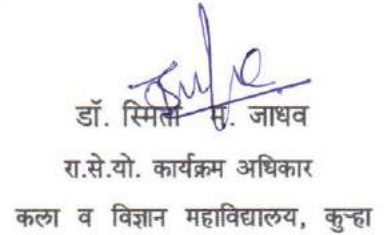 डॉ. स्मिता म. जाधव
रा.से.यो. कार्यक्रम अधिकार
कला व विज्ञान महाविद्यालय, कुऱ्हा